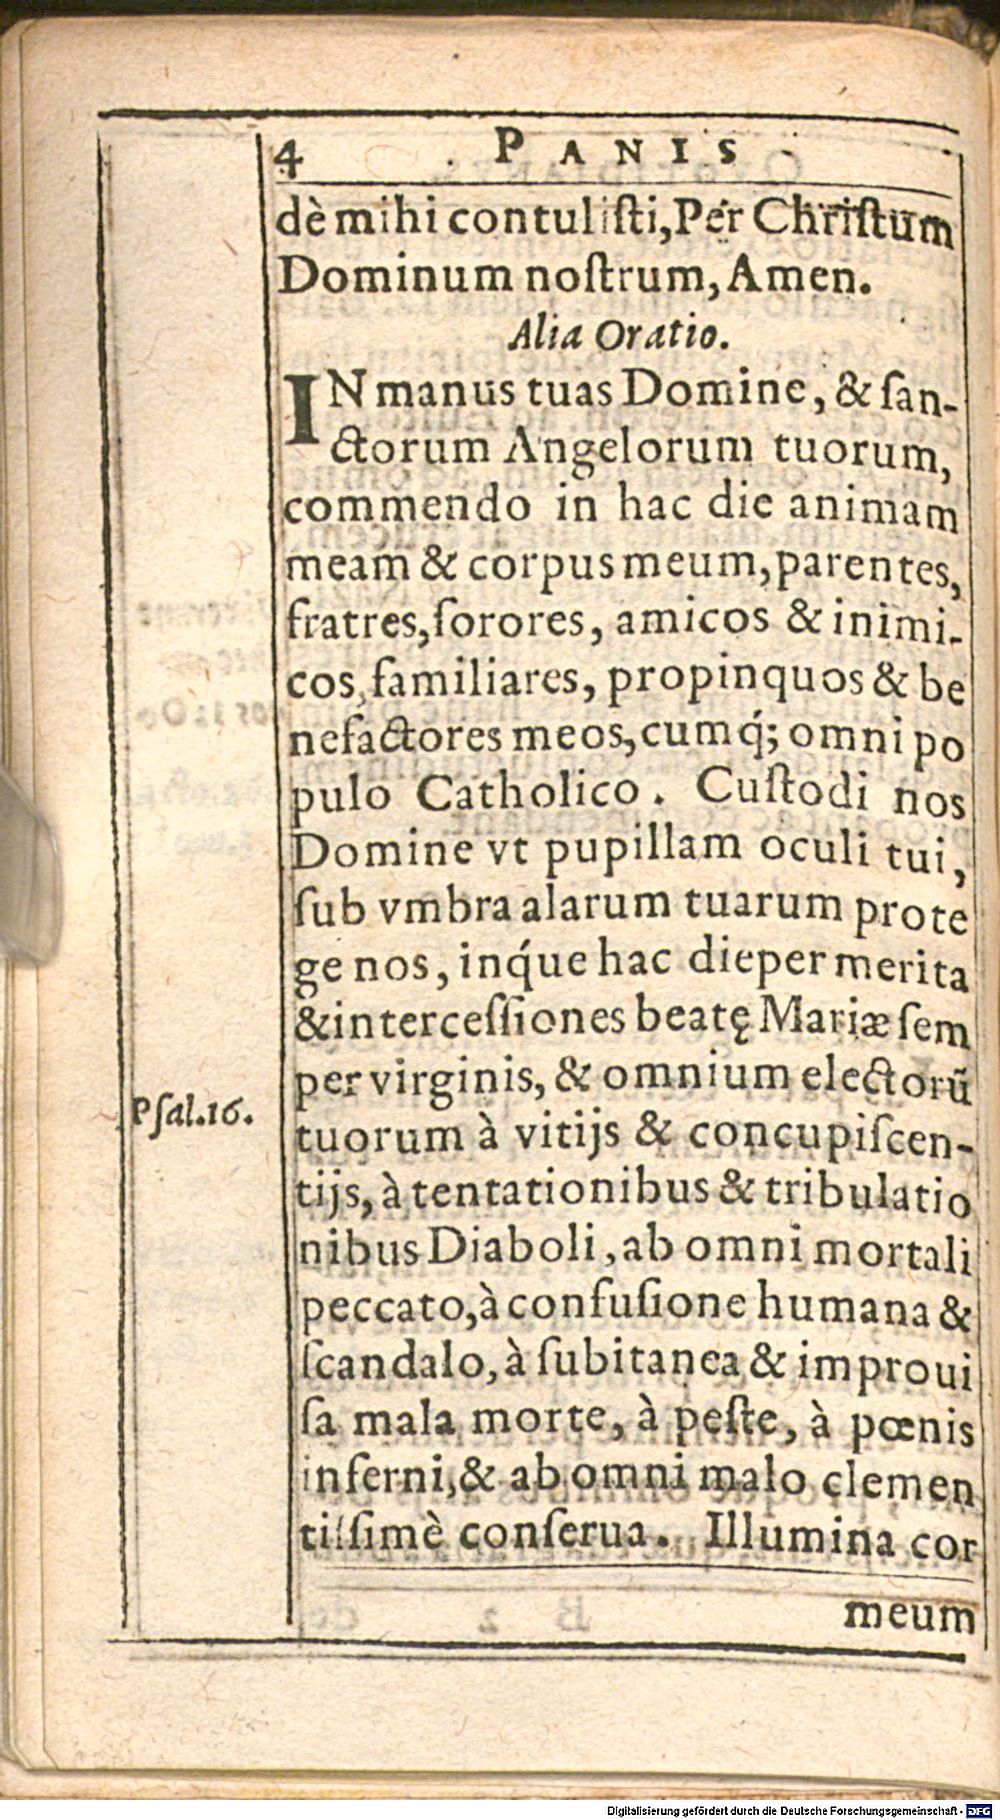 4 PANIS
dè mihi contulisti, Per Christum
Dominum noſtrum, Amen.
Alia Oratio.
IN manus tuas Domine, & ſan-
ctorum Angelorum tuorum,
commendo in hac die animam
meam & corpus meum, parentes,
fratres, ſorores, amicos & inimi-
cos, familiares, propinquos & be
nefactores meos, cumq́; omni po
pulo Catholico. Cuſtodi nos
Domine vt pupillam oculi tui,
ſub vmbra alarum tuarum prote
ge nos, inq́ue hac die per merita
& interceſſiones beatę Mariæ ſem
per virginis, & omnium electorũ
Pſal.16.
tuorum à vitijs & concupiſcen-
tijs, à tentationibus & tribulatio
nibus Diaboli, ab omni mortali
peccato, à confuſione humana &
ſcandalo, à ſubitanea & improui
ſa mala morte, à peſte, à pœnis
inferni, & ab omni malo clemen
tiſſimè conſerua. Illumina cor
meum
Digitalisierung gefördert durch die Deutsche Forschungsgemeinschaft - DFG